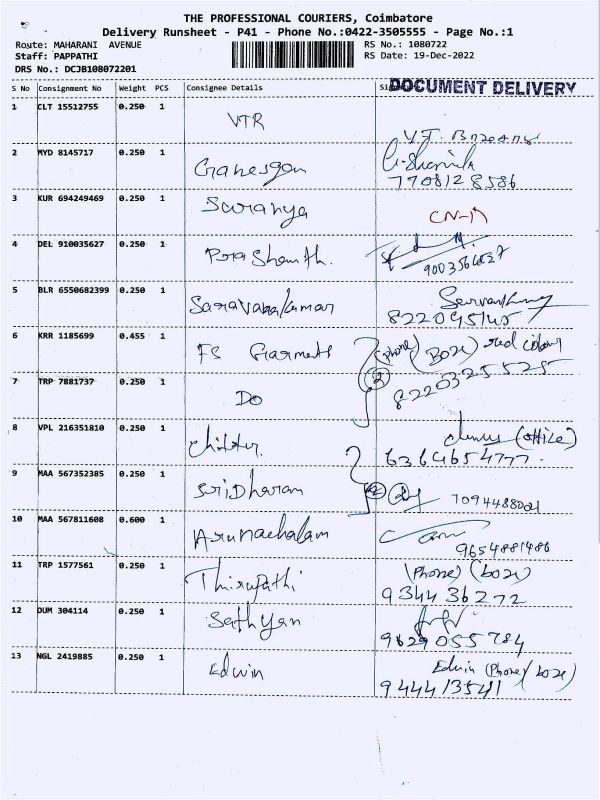 THE PROFESSIONAL COURIERS, Coimbatore
Delivery Runsheet - P41 - Phone No.:0422-3505555 - Page No.:1
Route: MAHARANI AVENUE RS No.: 1080722
Staff: PAPPATHI RS Date: 19-Dec-2022
DRS No.: DCJB108072201
DOCUMENT DELIVERY
S No Consignment No Weight PCS Consignee Details
1 CLT 15512755 0.250 1 VTR
2 MYD 8145717 0.250 1 Ganesgan 7708128586
3 KUR 694249469 0.250 1 Saranya CN-A
4 DEL 910035627 0.250 1 Prashanth.
5 BLR 6550682399 0.250 1 Saravanakumar
6 KRR 1185699 0.455 1 FS Garments (phone) (Boxe) red colour
7 TRP 7881737 0.250 1 Do (2) 8220325525
8 VPL 216351810 0.250 1 (office)
9 MAA 567352385 0.250 1 Sridharan (2)
10 MAA 567811608 0.600 1 Arunachalam 9654881486
11 TRP 1577561 0.250 1 Thirupathi (phone) (boxe)
934436272
12 DUM 304114 0.250 1 Sathyan 9629055784
13 NGL 2419885 0.250 1 Edwin Edwin (Phone/boxe)
9444135411